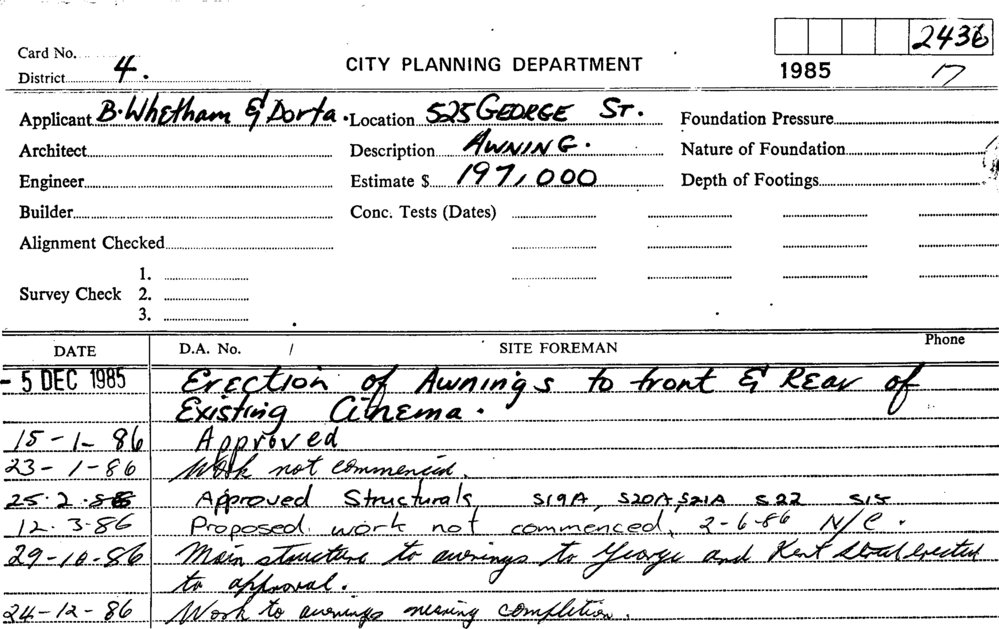 2436
Card No.
District 4.
CITY PLANNING DEPARTMENT
1985 17
Applicant B. Whetham & Dorta. Location 525 GEORGE ST. Foundation Pressure
Architect Description AWNING. Nature of Foundation
Engineer Estimate $ 197,000 Depth of Footings
Builder Conc. Tests (Dates)
Alignment Checked
1.
Survey Check 2.
3.
DATE D.A. No. / SITE FOREMAN Phone
- 5 DEC 1985 Erection of Awnings to front & Rear of
Existing Cinema.
15-1-86 Approved
23-1-86 Work not commenced.
25.2.86 Approved Structurals S19A, S20A, S21A S22 S15
12.3-86 Proposed work not commenced, 2-6-86 N/C.
29-10-86 Main structure to awnings to George and Kent Street erected
to approval.
24-12-86 Work to awnings nearing completion.